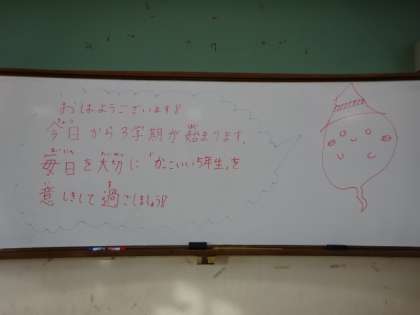 おはようございます!!
今日から3学期が始まります。
毎日を大切に「かっこいい5年生」を
意しきして過ごしましょう!!